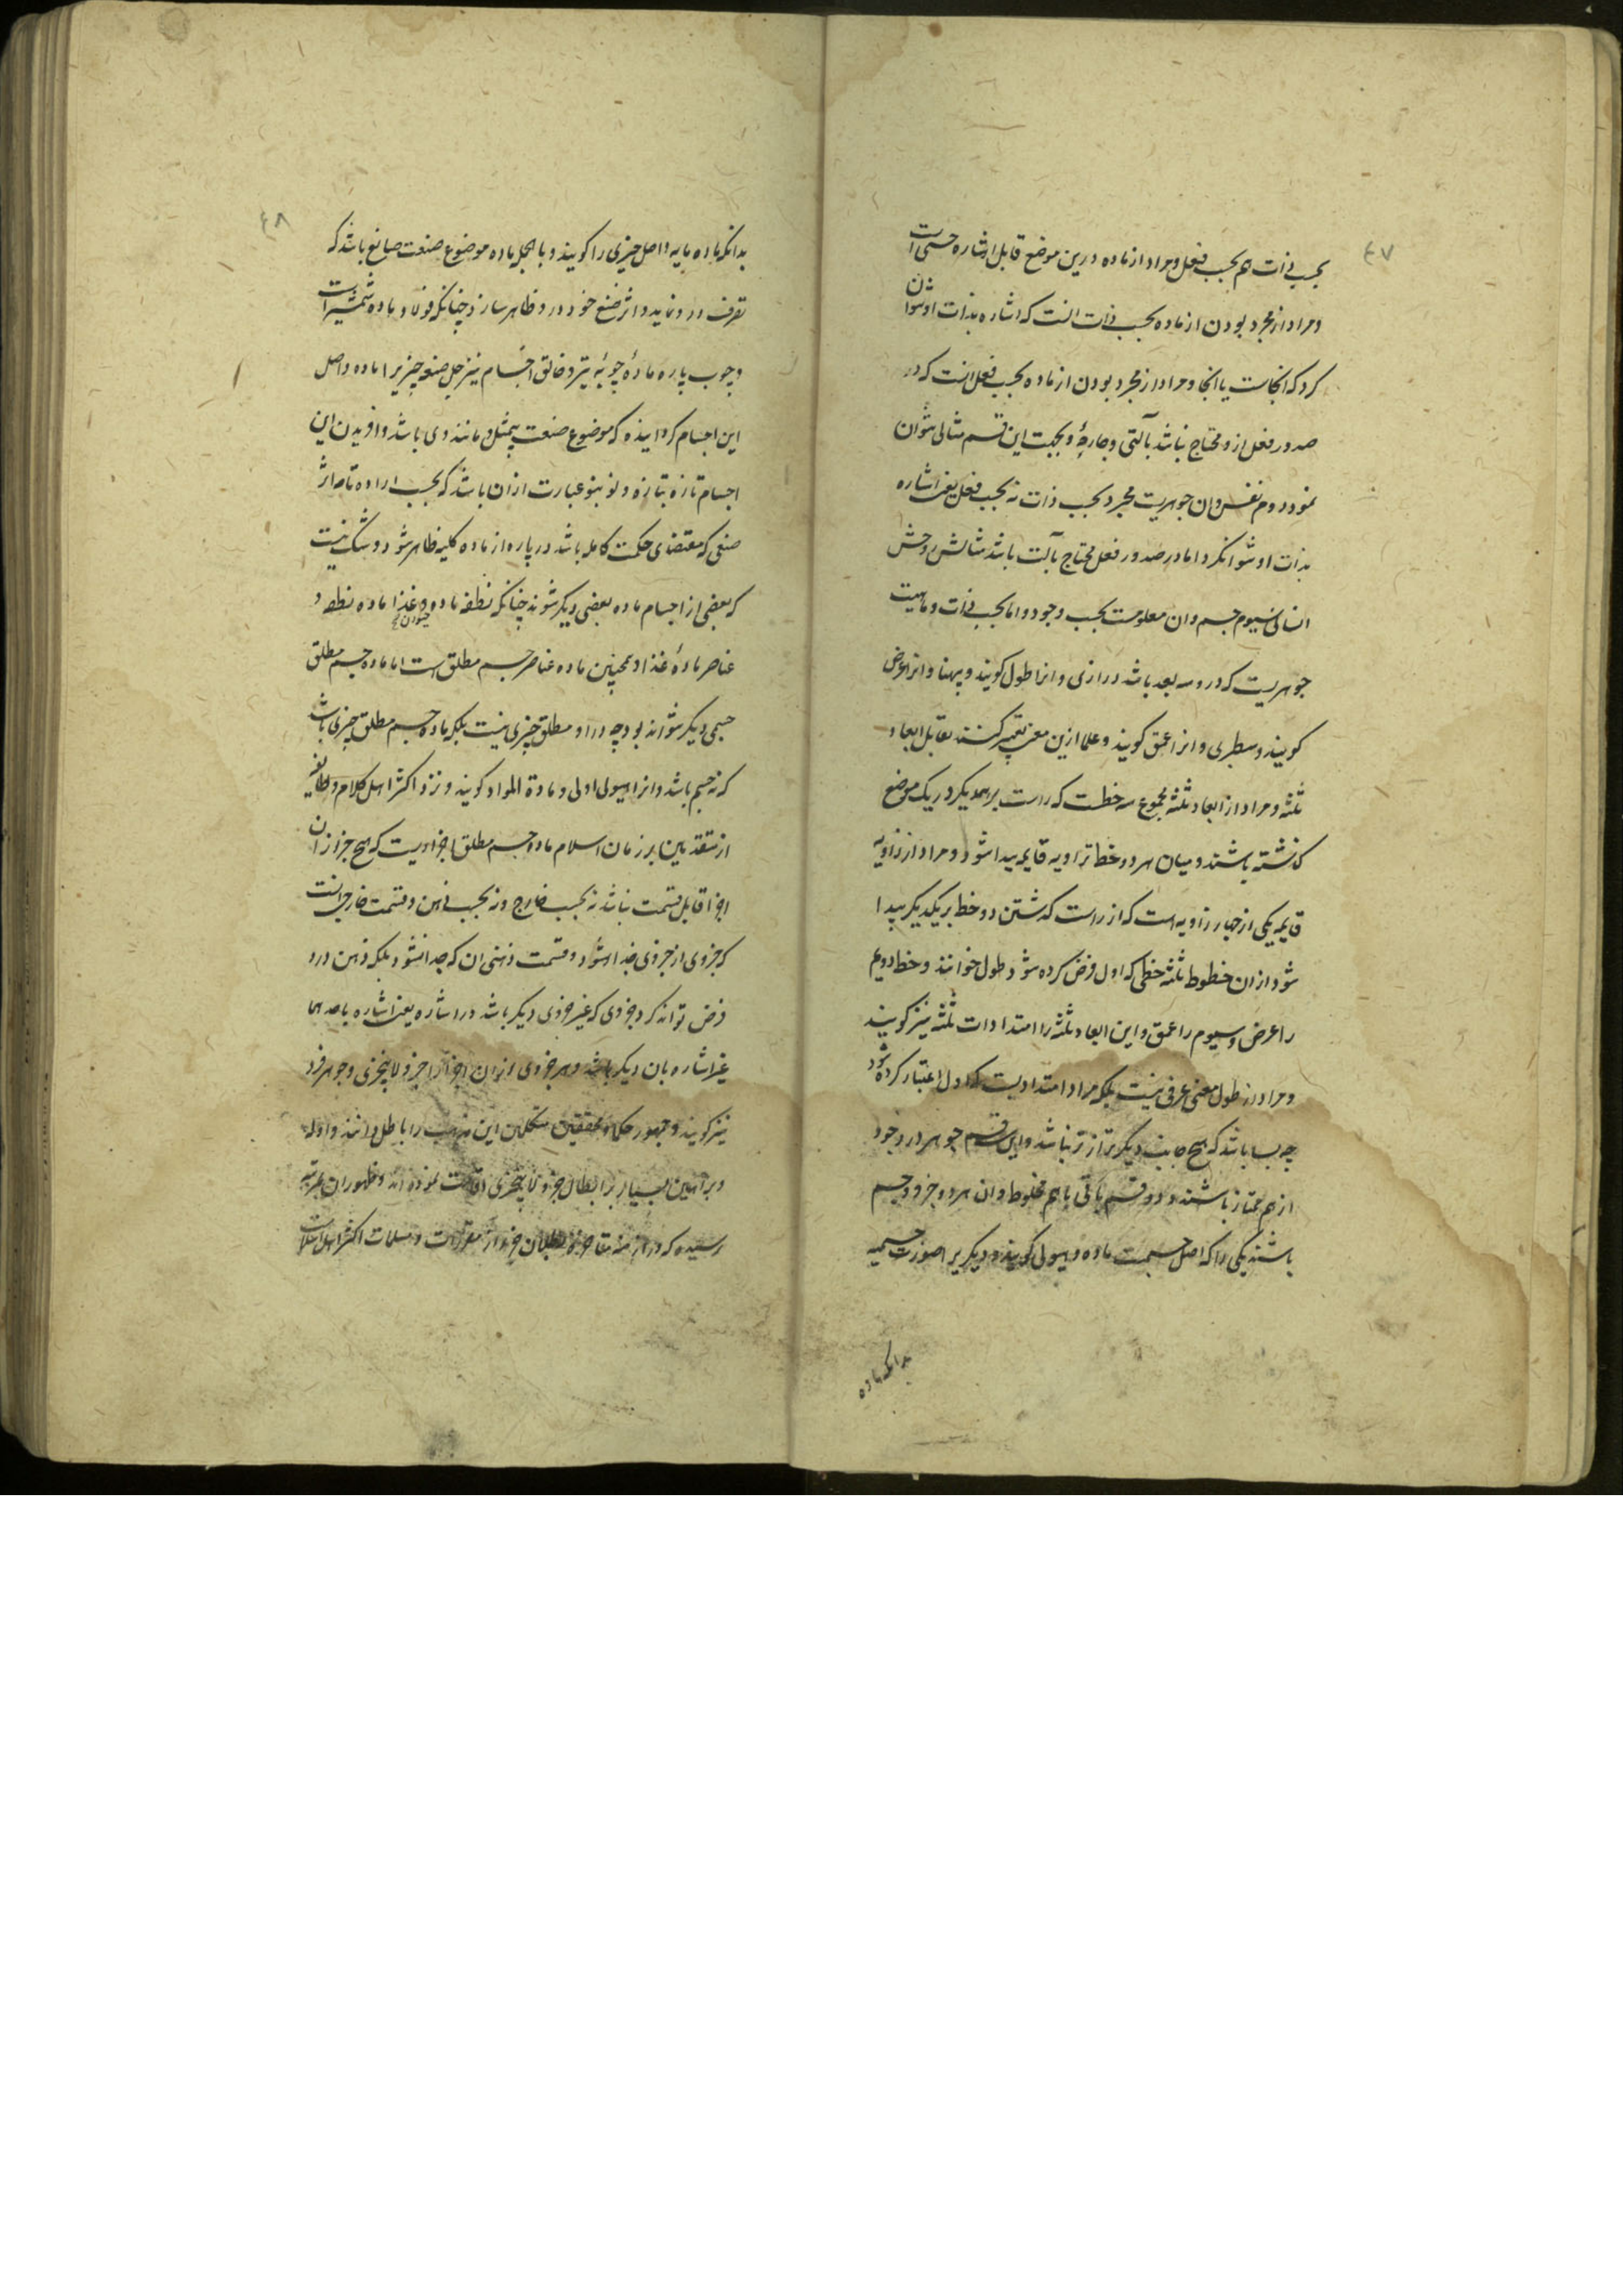 ۴۷
بحسب ذات هم بحسب فعل و مراد از ماده درین موضع قابل اشاره حسی است
و مراد از مجرد بودن از ماده بحسب ذات انست که اشاره بذات او نتوان
کرد که انجاست یا اینجا و مراد از مجرد بودن از ماده بحسب فعل انست که در
صدور فعل ازو محتاج نباشد بآلتی و جارحهٔ و بجهت این قسم مثالی نتوان
نمود دوم نفس و ان جوهریست مجرد بحسب ذات نه بحسب فعل یعنی اشاره
بذات او نتوان کرد اما در صدور فعل محتاج بآلت باشد مثالش روح
انسانی سیوم جسم و ان معلومست بحسب وجود و اما بحسب ذات و ماهیت
جوهریست که درو سه بعد باشد درازی و انرا طول کویند و پهنا و انرا عرض
کویند و سطبری و انرا عمق کویند و علما ازین معنی تعبیر کنند بقابل ابعاد
ثلثه و مراد از ابعاد ثلثه مجموع سه خطست که راست بر همدیکر در یک موضع
کذشته باشند و میان هر دو خط زاویه قایمه پیدا شود و مراد از زاویه
قایمه یکی از چهار زاویه است که از راست کذشتن دو خط بر یکدیکر پیدا
شود از ان خطوط ثلثه خطی که اول فرض کرده شود طول خوانند و خط دویم
را عرض و سیوم را عمق و این ابعاد ثلثه را امتدادات ثلثه نیز کویند
و مراد از طول معنی عرفی نیست بلکه مراد امتدادیست که اول اعتبار کرده شود
چه بسا باشد که هیچ جانب دیکر درازتر نباشد و این قسم جوهر در وجود
از هم ممتاز باشند و دو قسم باقی باهم مخلوط و ان هر دو جزو جسم
باشند یکی را که اصل جسمست ماده و هیولی کویند و دیکریرا صورت جسمیه
بدانکه ماده
۴۸
بدانکه ماده مایه و اصل چیزی را کویند و بالجمله ماده موضوع صنعت صانع باشد که
تصرف درو نماید و اثر صنع خود درو ظاهر سازد چنانکه فولاد ماده شمشیر است
و چوب پاره مادهٔ چوبهٔ تیر و خالق اجسام نیز جل صنعه چیزیرا ماده و اصل
این اجسام کردانیده که موضوع صنعت بیمثل و مانند وی باشد و افریدن این
اجسام تازه بتازه و نو بنو عبارت ازان باشد که بحسب اراده تامه اثر
صنعی که مقتضای حکمت کامله باشد در پاره از ماده کلیه ظاهر شود و شک نیست
که بعضی از اجسام ماده بعضی دیکر شوند چنانکه نطفه ماده حیوان و غذا ماده نطفه و
عناصر مادهٔ غذا و همچنین ماده عناصر جسم مطلق است اما ماده جسم مطلق
جسمی دیکر نتواند بود چه ورا و مطلق چیزی نیست بلکه ماده جسم مطلق چیزی باشد
که نه جسم باشد و انرا هیولی اولی و مادة المواد کویند و نزد اکثر اهل کلام و طایفه
از متقدمین بر زمان اسلام ماده جسم مطلق اجزاویست که هیچ جزو از ان
اجزا قابل قسمت نباشد نه بحسب خارج و نه بحسب ذهن و قسمت خارجی انست
که جزوی از جزوی جدا شود و قسمت ذهنی ان که جدا نشود بلکه ذهن درو
فرض تواند کرد جزوی که غیر جزوی دیکر باشد در اشاره یعنی اشاره باحدهما
غیر اشاره بان دیکر باشد و هر جزوی از ان اجزا را جزو لا یتجزی و جوهر فرد
نیز کویند و جمهور حکما و محققین متکلمین این مذهب را باطل دانند و ادله
و براهین بسیار بر ابطال جزو لا یتجزی اقامت نموده اند و ظهور ان بمرتبه
رسیده که در ازمنه متاخره بطلان جزو از مقررات و مسلمات اکثر اهل